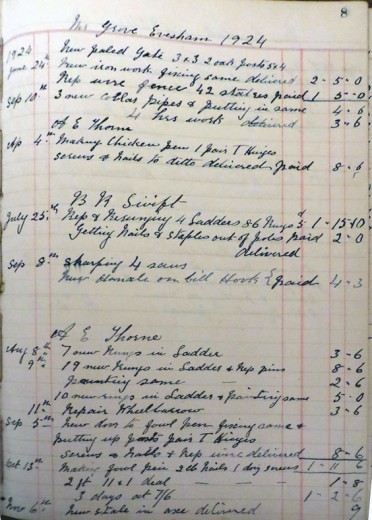 8
Mr Grove Evesham 1924
1924 New Paled Gate 3 x 3 2 oak posts 5x4
June 24th New iron work fixing same delivered 2-5-0
Rep wire fence 42 stakes paid 1-5-0
Sep 10th 3 new collar pipes & putting in same 4-6
4 hrs work delivered 3-6
A E Thorne
Ap 4th Making Chicken Pen 1 pair T Hinges
screws & nails to ditto delivered paid 8-6
B R Swift
July 25th Rep & 4 Ladders 86 Rungs 5d 1-15-10
Getting Nails & Staples out of Poles paid 2-0
delivered
Sep 8th sharping 4 saws
New Handle on bill Hook & paid 4-3
A E Thorne
Aug 8th 7 new Rungs in Ladder 3-6
9th 19 new Rungs in Ladder & Rep pins 8-6
Painting same 2-6
10 new rings in Ladder & Painting same 5-0
11th Repair Wheelbarrow 3-6
Sep 5th New door to fowl Pen fixing same &
putting up pair T Hinges
screws & Nails & Rep wire delivered 8-6
Oct 13th Making fowl Pen 2 lb Nails 1 doz screws 1-11-6
2 ft 11 x 1 deal 1-8
3 days at 7/6 1-2-6
Nov 6th New in axe delivered 9